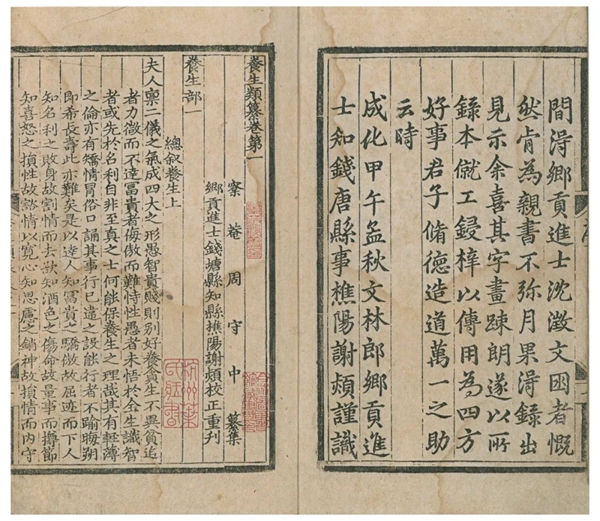 間淂鄉貢進士沈澂文囦者慨
然肯為親書不弥月果淂錄出
見示余喜其字畫踈朗遂以所
錄本僦工鋟梓以傳用為四方
好事君子脩德造道萬一之助
云時
成化甲午孟秋文林郎鄉貢進
士知錢唐縣事樵陽謝熲謹識
養生類纂卷第一
寮菴周守中纂集
鄉貢進士錢塘縣知縣樵陽謝熲校正重刊
養生部一
總叙養生上
夫人禀二儀之氣成四大之形愚智貴賤則别好養貪生不異貧迫
者力微而不達冨貴者侮傲而難恃性愚者未悟於全生識智
者或先於名利自非至真之士何能保養生之理哉其有輕薄
之倫亦有矯情冐俗口誦其事行已違之設能行者不踰晦朔
即希長壽此亦難矣是以達人知富貴之驕傲故屈迹而下人
知名利之敗身故割情而去欲知酒色之傷命故量事而撙節
知喜怒之損性故豁情以寬心知思慮之銷神故損情而內守